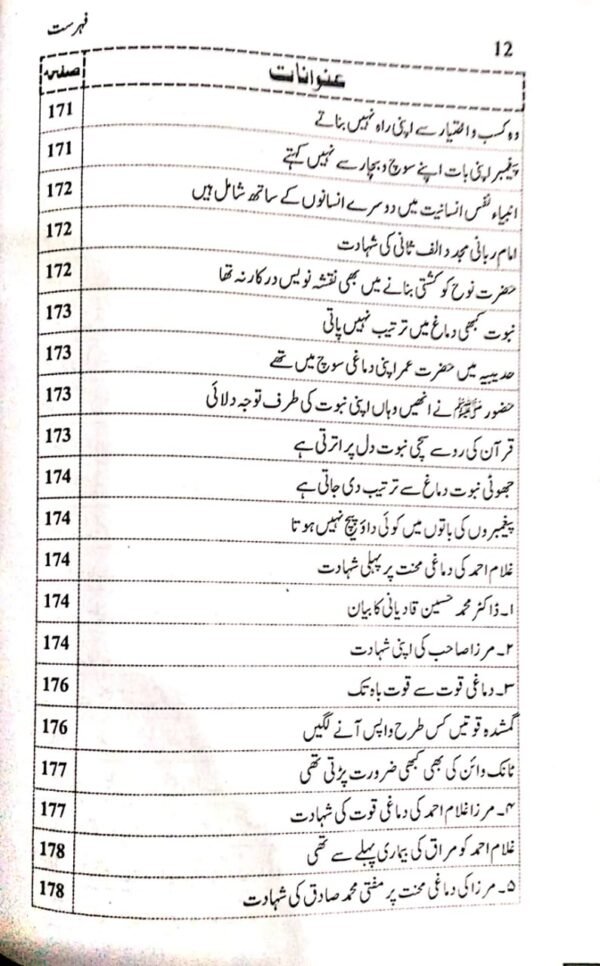 فہرست
12
عنوانات صفحہ
وہ کسب و اختیار سے اپنی راہ نہیں بناتے 171
پیغمبر اپنی بات اپنے سوچ و بچار سے نہیں کہتے 171
انبیاء نفس انسانیت میں دوسرے انسانوں کے ساتھ شامل ہیں 172
امام ربانی مجدد الف ثانی کی شہادت 172
حضرت نوح کو کشتی بنانے میں بھی نقشہ نویس درکار نہ تھا 172
نبوت کبھی دماغ میں ترتیب نہیں پاتی 173
حدیبیہ میں حضرت عمر اپنی دماغی سوچ میں تھے 173
حضور ﷺ نے انھیں وہاں اپنی نبوت کی طرف توجہ دلائی 173
قرآن کی رو سے سچی نبوت دل پر اترتی ہے 173
جھوٹی نبوت دماغ سے ترتیب دی جاتی ہے 174
پیغمبروں کی باتوں میں کوئی داؤ پیچ نہیں ہوتا 174
غلام احمد کی دماغی محنت پر پہلی شہادت 174
۱۔ ڈاکٹر محمد حسین قادیانی کا بیان 174
۲۔ مرزا صاحب کی اپنی شہادت 174
۳۔ دماغی قوت سے قوت باہ تک 176
گمشدہ قوتیں کس طرح واپس آنے لگیں 176
ٹانک وائن کی بھی کبھی ضرورت پڑتی تھی 177
۴۔ مرزا غلام احمد کی دماغی قوت کی شہادت 177
غلام احمد کو مراق کی بیماری پہلے سے تھی 178
۵۔ مرزا کی دماغی محنت پر مفتی محمد صادق کی شہادت 178